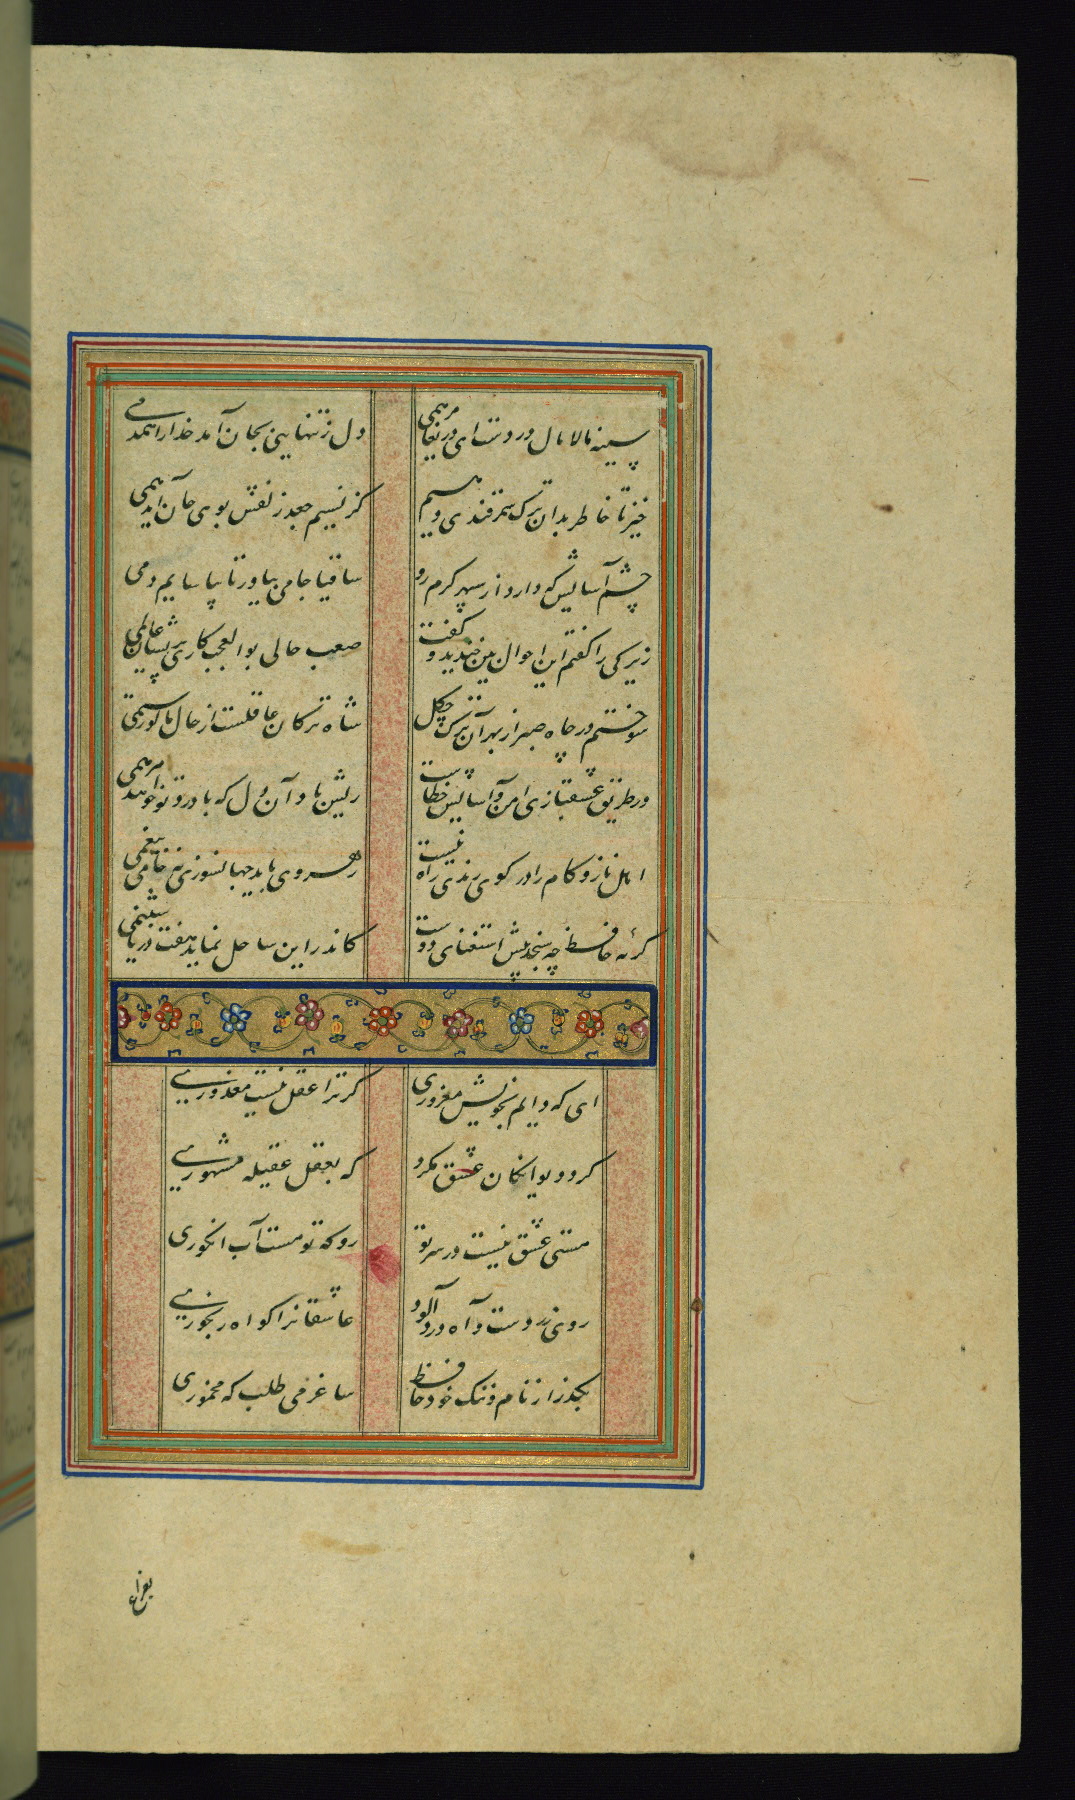 سینه مالامال دردست ای دریغا مرهمی
دل ز تنهایی بجان آمد خدا را همدمی
خیز تا خاطر بدان ترک سمرقندی دهیم
کز نسیم جعد زلفش بوی جان آید همی
چشم آسایش که دارد از سپهر گرم رو
ساقیا جامی بیاور تا بیاسایم دمی
زیرکی را گفتم این احوال بین خندید و گفت
صعب حالی بوالعجب کاری پریشان عالمی
سوختم در چاه صبر از بهر آن ترک چگل
شاه ترکان غافلست از حال ما کو رستمی
در طریق عشقبازی امن و آسایش خطاست
ریش باد آن دل که با درد تو خواهد مرهمی
اهل ناز و کام را در کوی رندی راه نیست
رهروی باید جهانسوزی نه خامی بیغمی
گریه حافظ چه سنجد پیش استغنای دوست
کاندر این ساحل نماید هفت دریا شبنمی
ای که دایم بخویش مغروری
گر ترا عقل نیست معذوری
گرد دیوانگان عشق مگرد
که بعقل عقیله مشهوری
مستی عشق نیست در سر تو
رو که تو مست آب انگوری
روی زردست و آه دردآلود
عاشقانرا گواه رنجوری
بگذر از نام و ننگ خود حافظ
ساغر می طلب که مخموری